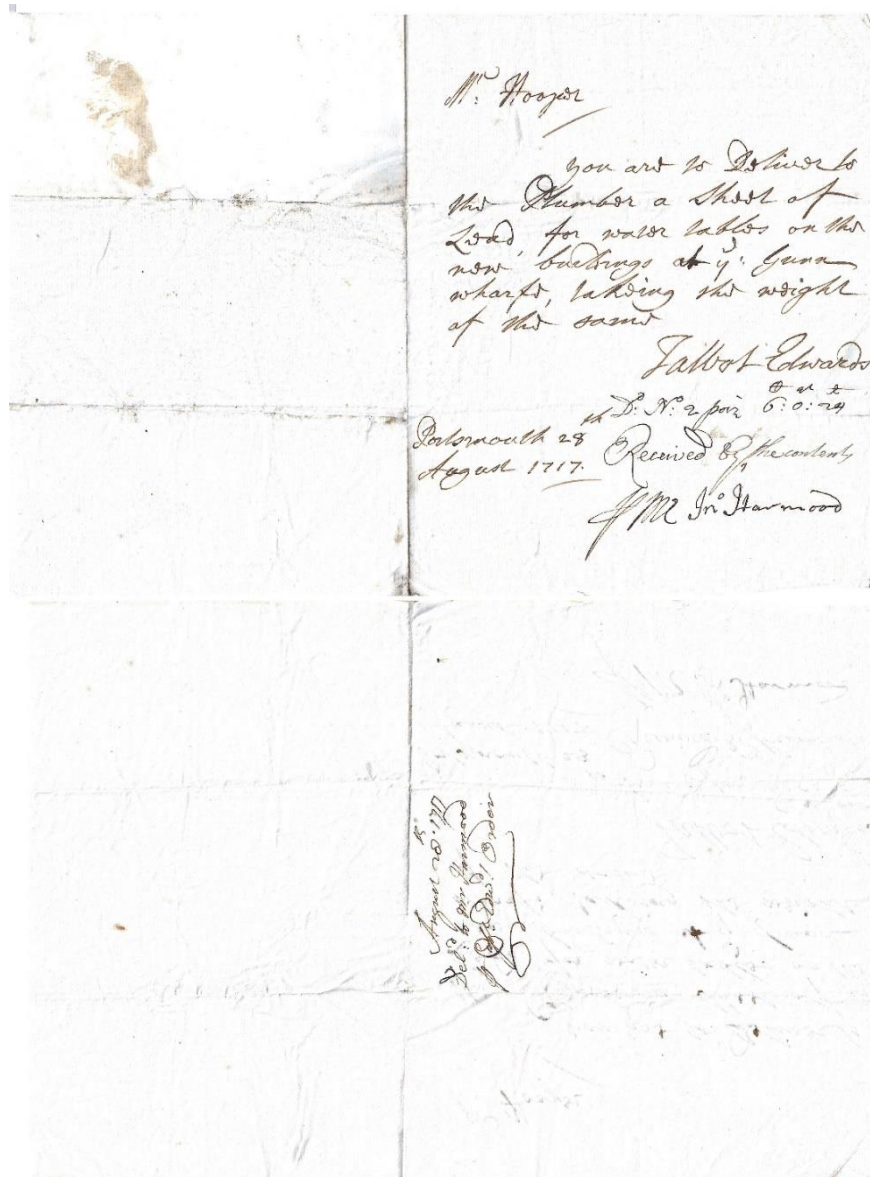 Mr. Hooper
you are to Deliver to
the Plumber a Sheet of
Lead, for water tables on the
new buildings at ye: Gunn
wharfe, takeing the weight
of the same
Talbot Edwards
Do: No: 2 poiz 6: 0: 24
Portsmouth 28th
August 1717.
Received the contents
Jno Harmood
August 28th: 1717
Deld to Mr Harmood
Order